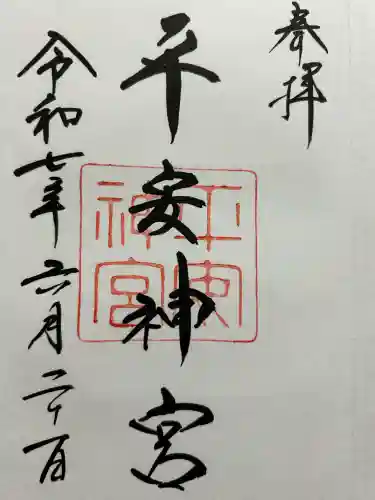 奉拝
平安神宮
平安神宮
令和七年六月二十日